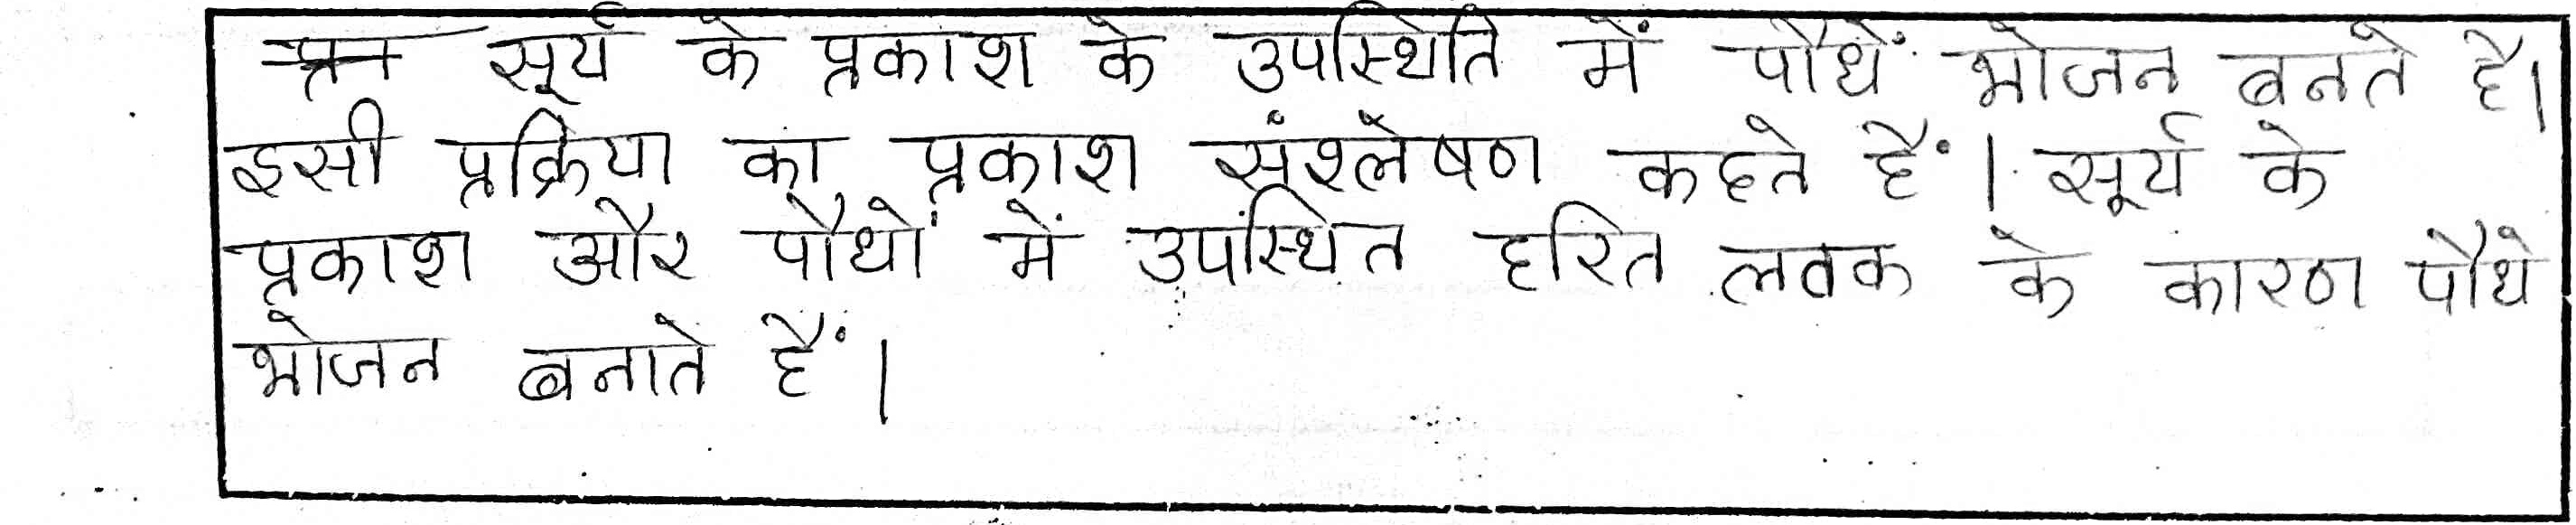 सूर्य के प्रकाश के उपस्थिति में पौधें भोजन बनते है।
इसी प्रक्रिया का प्रकाश संश्लेषण कहते हैं। सूर्य के
प्रकाश और पौधों में उपस्थित हरित लवक के कारण पौधे
भोजन बनाते हैं।